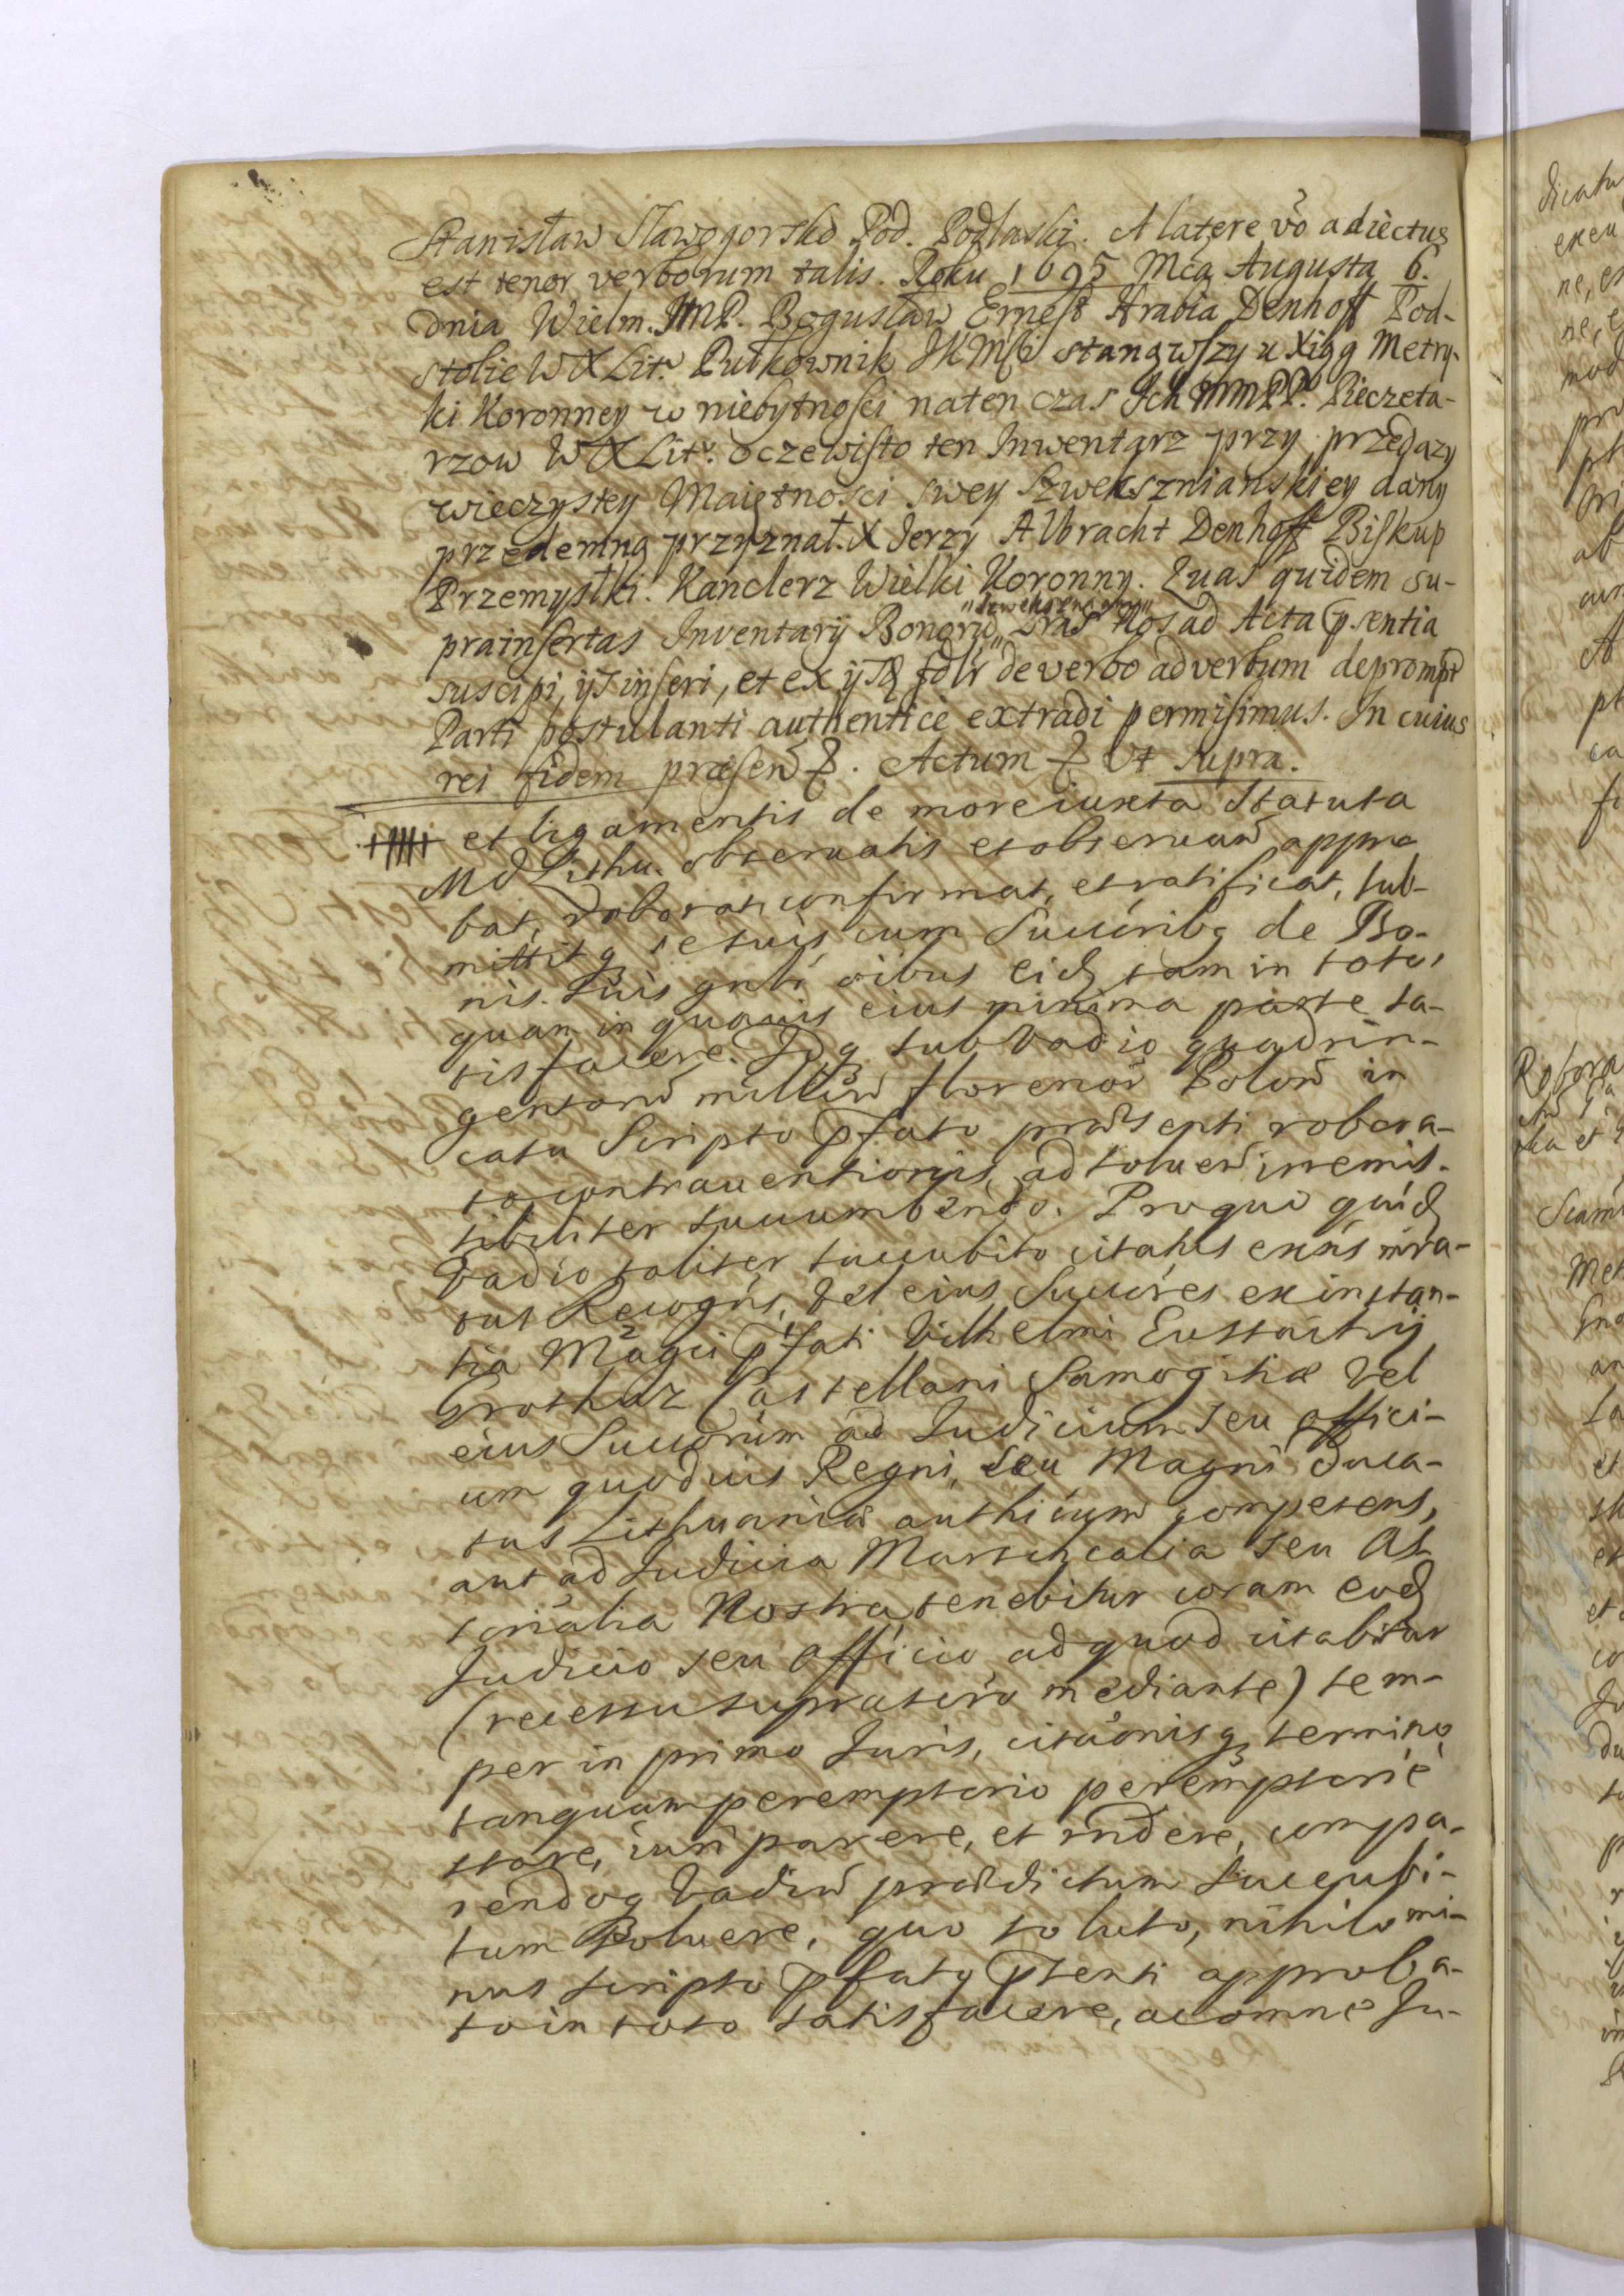 Stanisław Sławogorski Pod. Podlaski. A latere vo adiectus
est tenor verborum talis. Roku 1695 Mca Augusta 6.
dnia Wielm. JMP. Bogusław Ernest Hrabia Denhoff Pod-
stolie WXLit. Pułkownik JKMści stanąwszy u Xiąg Metry-
ki Koronney w niebytności na ten czas Ich MMPP. Pieczęta-
rzow WXLit. oczewisto ten Inwentarz przy przedazy
wieczystey Maiętności swey Szweksznianskiey dany
przedemną przyznał. X Jerzy Albracht Denhoff Biskup
Przemyslki. Kanclerz Wielki Koronny. Quas quidem su-
prainsertas Inventarij Bonorū "Szweksznensium" Lras Nos ad Acta pńsentia
suscipi, ijs inseri, et ex ijsq de verbo ad verbum deprompt
Parti postulanti authenticè extradi permisimus. In cuius
rei fidem præsen &. Actum & Ut supra.
et ligamentis de more iuxta Statuta
MDLithu. obseruatis et obseruan appro
bat, roborat, confirmat, et ratificat, sub-
mittitq se suis cum Succōribq de Bo-
nis suis gnlr oibus eidē tam in toto,
quam in quavis eius minima parte sa-
tisfacere. Idq sub Vadio quadrin-
gentorū milliū florenor̄ Polon in
casu Scripto pfato præsenti robora-
to contrauentionis, ad soluen irremis-
sibiliter succumbendo. Pro quo quidē
Vadio taliter succubito citatus exns mra-
tus Recogns, Vel eius Succōres ex instan-
tia Magci pfati Vilhelmi Eustachij
Grothuz Castellani Samogitiæ Vel
eius Succorūm ad Iudicium seu offici-
um quoduis Regni, seu Magni Duca-
tus Lithuaniæ authicum competens,
aut ad Iudicia Marschcalia seu As-
sorialia Nostra, tenebitur coram eodē
Iudicio seu officio ad quod citabitur
(recessu supra mediante) sem-
per in primo Iuris, citaonisq termino
tanquam peremptorio peremptoriè
stare, iuri parere, et rndere, compa-
rendoq Vadiū prædictum succubi-
tum soluere, quo soluto, nihilomi-
nus scripto pfato pnsenti approba-
to in toto satisfacere, ac omne Iu-